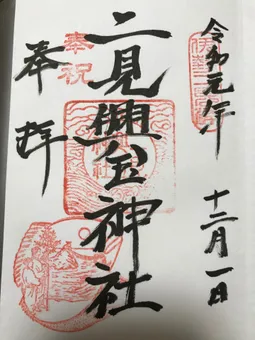 令和元年
十二月一日
二見興玉神社
奉祝
奉拜